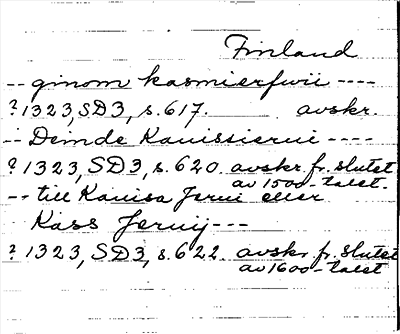 Finland
-- ginom kasmierfwii ----
? 1323, SD3, s. 617. avskr.
-- Deinde Kauissierui ----
? 1323, SD3, s. 620. avskr. fr. slutet
av 1500-talet.
-- till Kauisa Jerui eller
Kass Jeruij ---
? 1323, SD3, s. 622. avskr. fr. slutet
av 1600-talet